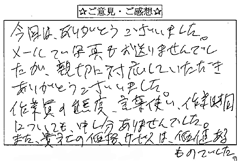 ☆ご意見・ご感想☆
今回はありがとうございました。
メールでは写真もお送りませんでし
たが、親切に対応していただき
ありがとうございました。
作業員の態度、言葉使い、作業時間
についても、申し分ありませんでした。
また、貴社の価格、サービスは、価値ある
ものでした。